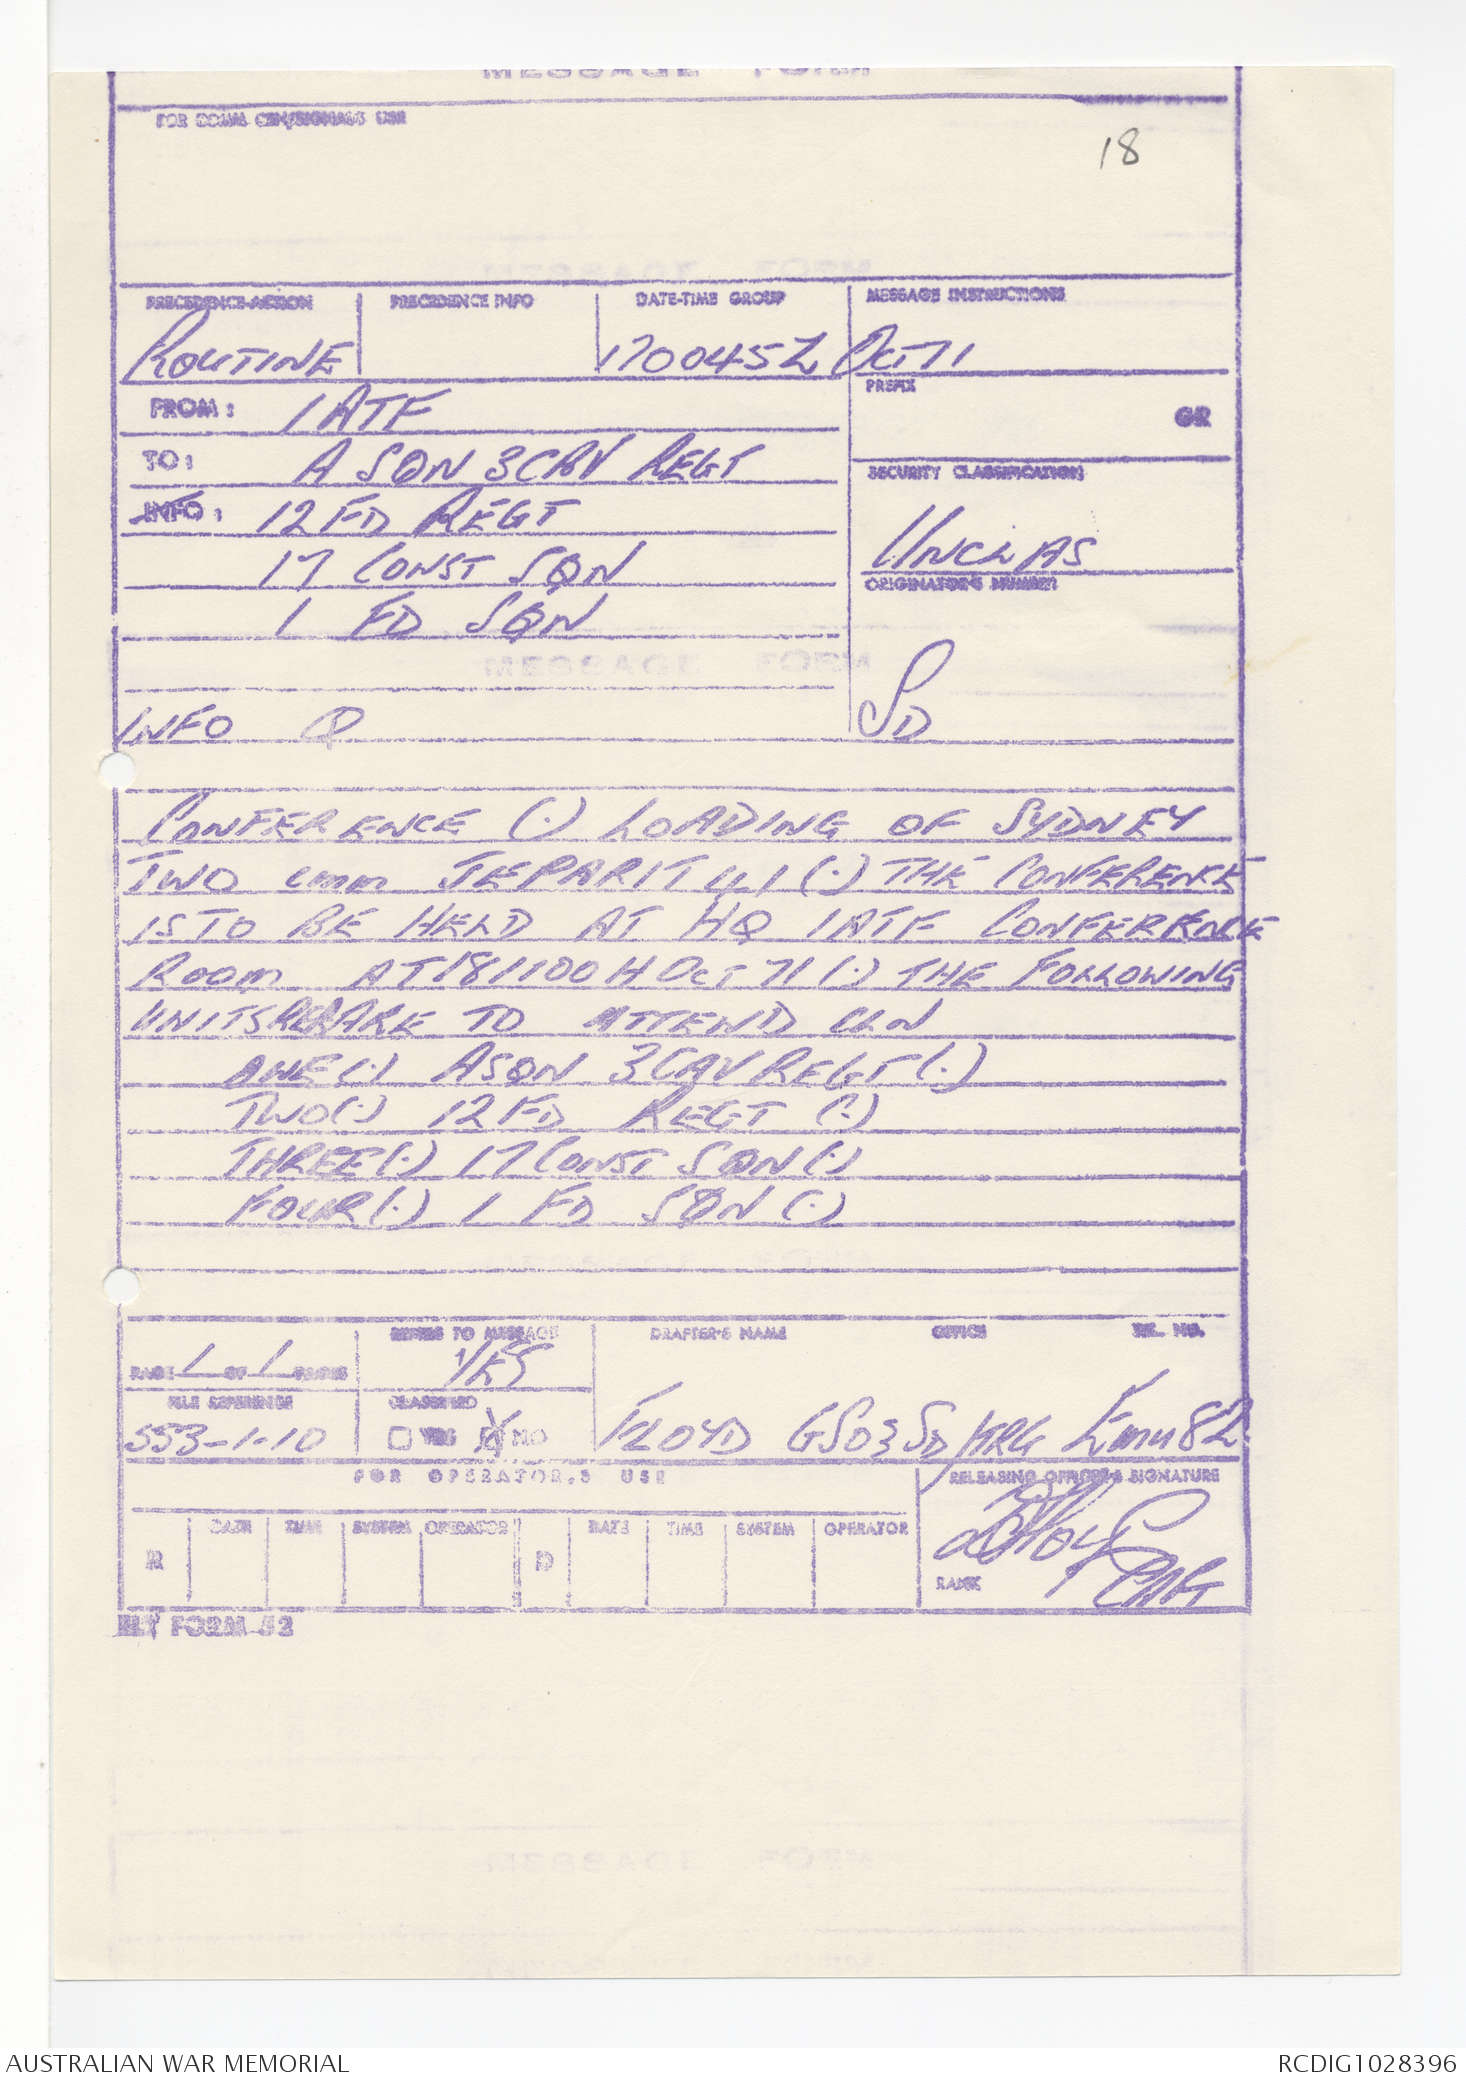 MESSAGE FORM
FOR COMM CEN/SIGNALS USE
18
PRECEDENCE-ACTION PRECEDENCE INFO DATE-TIME GROUP MESSAGE INSTRUCTIONS
ROUTINE 170045Z OCT 71
PREFIX
FROM: 1 ATF
GR
TO: A SQN 3 CAV REGT
SECURITY CLASSIFICATION
INFO: 12 FD REGT
17 CONST SQN
UNCLAS
ORIGINATOR'S NUMBER
1 FD SQN
SD
INFO Q
CONFERENCE (.) LOADING OF SYDNEY
TWO cmm JEPARIT 41 (.) THE CONFERENCE
IS TO BE HELD AT HQ 1ATF CONFERENCE
ROOM AT 181100H OCT 71 (.) THE FOLLOWING
UNITS ARE TO ATTEND CLN
ONE (.) A SQN 3 CAV REGT (.)
TWO (.) 12 FD REGT (.)
THREE (.) 17 CONST SQN (.)
FOUR (.) 1 FD SQN (.)
REFERS TO MESSAGE DRAFTER'S NAME OFFICE TEL. NO.
PAGE 1 OF 1 PAGES YES
FILE REFERENCE CLASSIFIED
553-1-10 YES NO FLOYD GSO3 SD Emu 82
FOR OPERATOR,S USE RELEASING OFFICER'S SIGNATURE
DATE TIME SYSTEM OPERATOR DATE TIME SYSTEM OPERATOR
R D
RANK
FORM 52
AUSTRALIAN WAR MEMORIAL RCDIG1028396